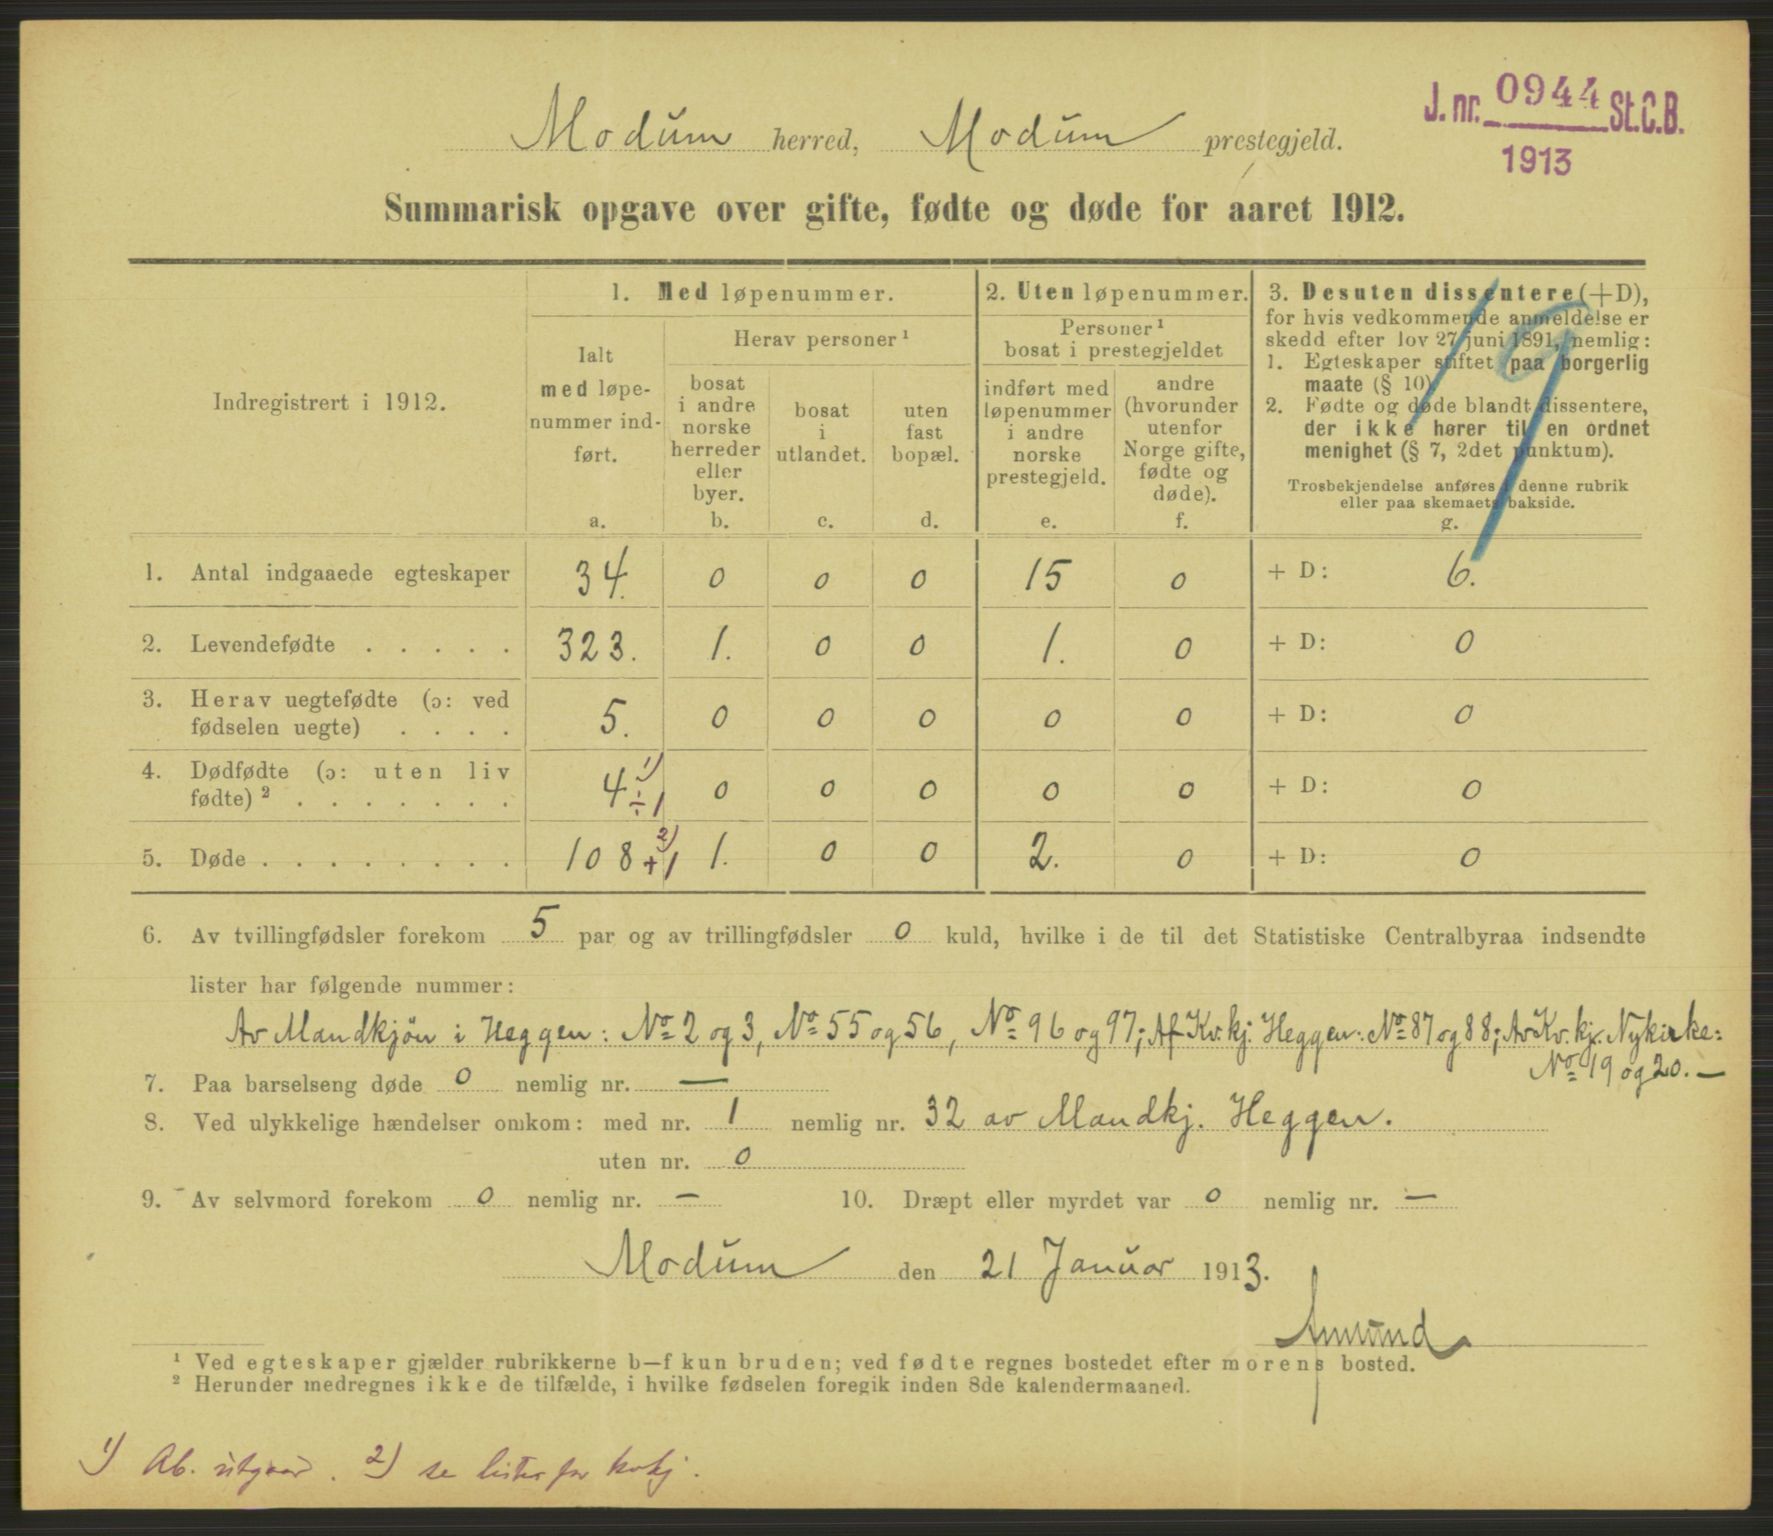 J. nr. 0944 St.C.B.
1913
Modum herred, Modum prestegjeld.
Summarisk opgave over gifte, fødte og døde for aaret 1912.
Indregistrert i 1912.
1. Med løpenummer.
Ialt
med løpe-
nummer ind-
ført.
a.
Herav personer¹
bosat
i andre
norske
herreder
eller
byer.
b.
bosat
i
utlandet.
c.
uten
fast
bopæl.
d.
2. Uten løpenummer.
Personer¹
bosat i prestegjeldet
indført med
løpenummer
i andre
norske
prestegjeld.
e.
andre
(hvorunder
utenfor
Norge gifte,
fødte og
døde).
f.
3. Desuten dissentere (+D),
for hvis vedkommende anmeldelse er
skedd efter lov 27 juni 1891, nemlig:
1. Egteskaper stiftet paa borgerlig
maate (§ 10).
2. Fødte og døde blandt dissentere,
der ikke hører til en ordnet
menighet (§ 7, 2det punktum).
Trosbekjendelse anføres i denne rubrik
eller paa skemaets bakside.
g.
1. Antal indgaaede egteskaper 34. 0 0 0 15 0 + D: 6.
2. Levendefødte . . . . . 323. 1. 0 0 1. 0 + D: 0
3. Herav uegtefødte (ɔ: ved
fødselen uegte) . . . . 5. 0 0 0 0 0 + D: 0
4. Dødfødte (ɔ: uten liv
fødte)² . . . . . . . 4 ÷1 ¹) 0 0 0 0 0 + D: 0
5. Døde . . . . . . . . 108 +1 ²) 1. 0 0 2. 0 + D: 0
6. Av tvillingfødsler forekom 5 par og av trillingfødsler 0 kuld, hvilke i de til det Statistiske Centralbyraa indsendte
lister har følgende nummer:
Av Mandkjön i Heggen: No 2 og 3, No 55 og 56, No 96 og 97; Af Kv.kj. Heggen: No 87 og 88; Av Kv.kj. Nykirke:
No 19 og 20. —
7. Paa barselseng døde 0 nemlig nr. —
8. Ved ulykkelige hændelser omkom: med nr. 1 nemlig nr. 32 av Mandkj. Heggen.
uten nr. 0
9. Av selvmord forekom 0 nemlig nr. — 10. Dræpt eller myrdet var 0 nemlig nr. —
Modum den 21 Januar 1913.
¹ Ved egteskaper gjælder rubrikkerne b—f kun bruden; ved fødte regnes bostedet efter morens bosted.
² Herunder medregnes ikke de tilfælde, i hvilke fødselen foregik inden 8de kalendermaaned.
1) Ab. utgaar. 2) se lister for kvkj.